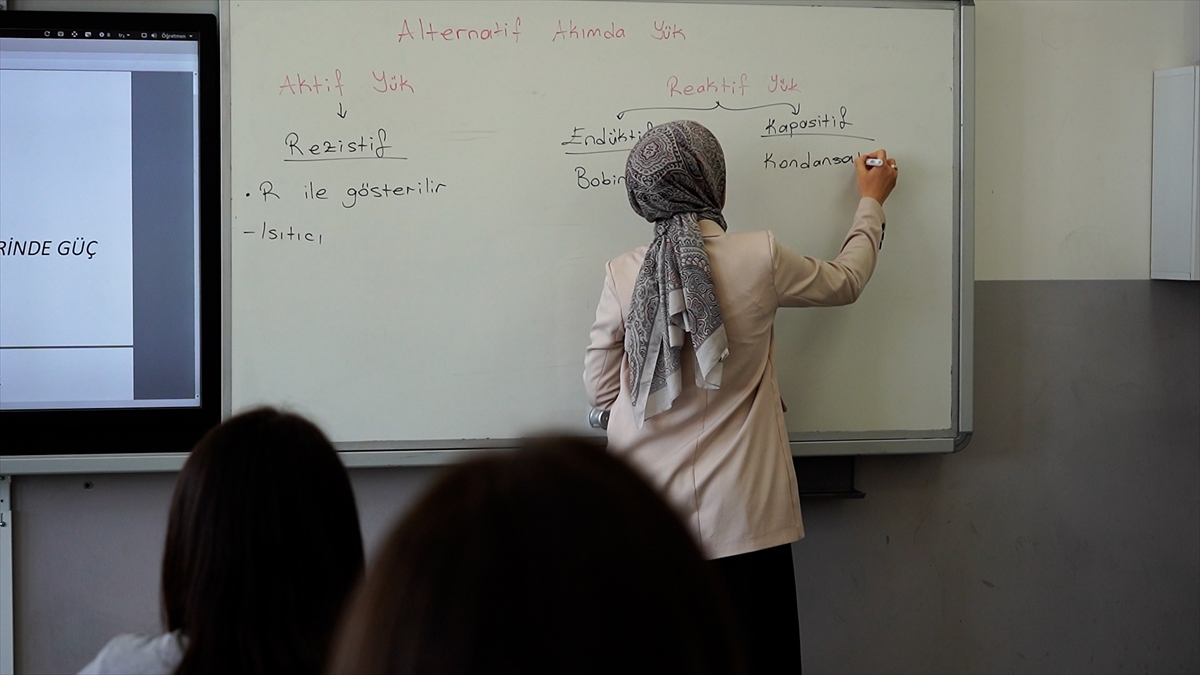 Öğretmen
RİNDE GÜÇ
Alternatif Akımda Yük
Aktif Yük
Rezistif
• R ile gösterilir
- Isıtıcı
Reaktif Yük
Endüktif
Bobin
Kapasitif
Kondansa